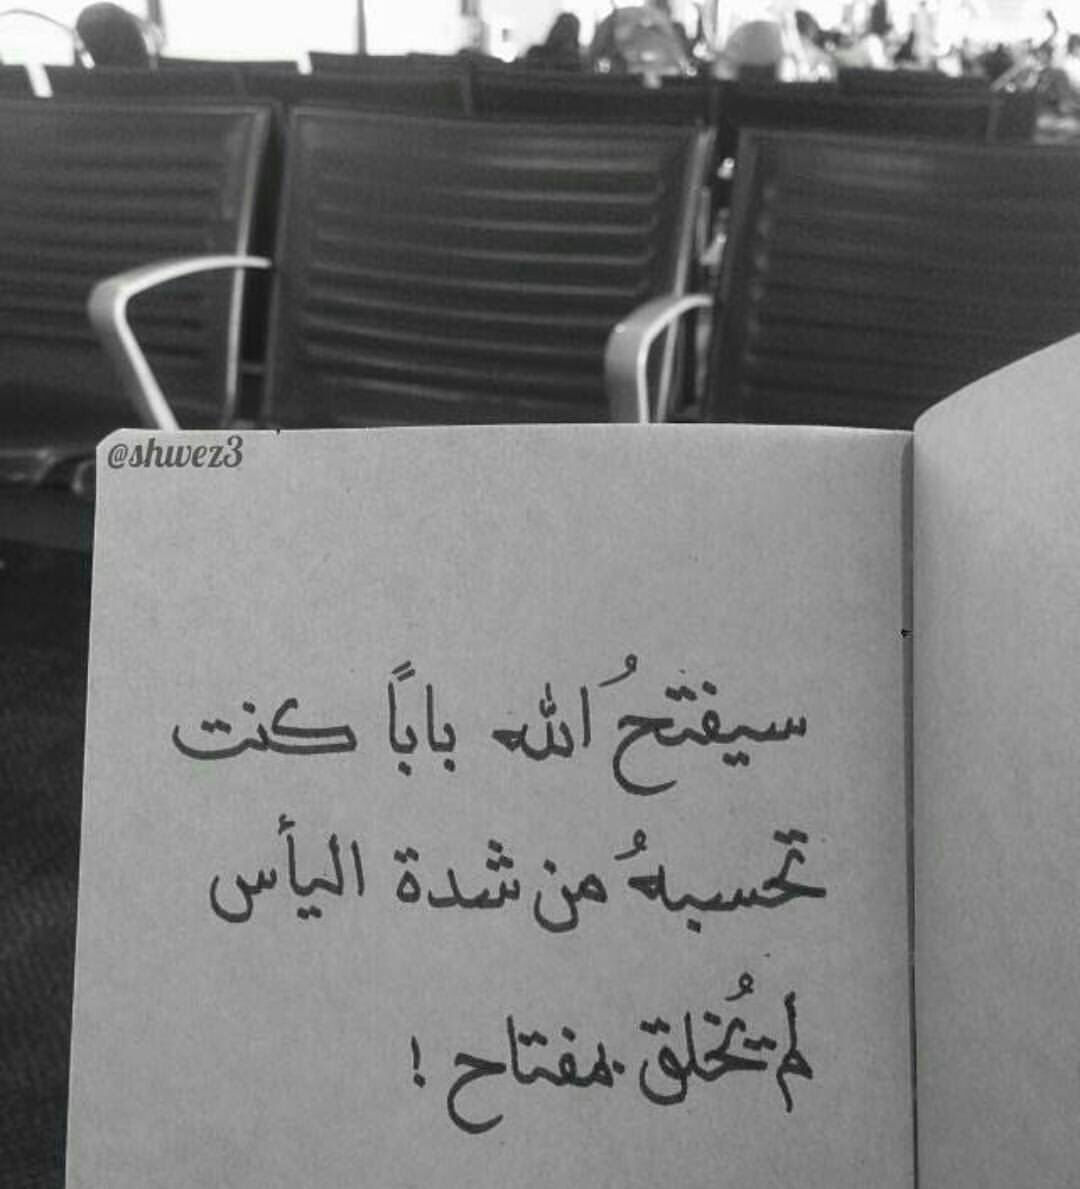 @shwez3
سيفتحُ الله باباً كنت
تحسبهُ من شدة اليأس
لم تُخلق بمفتاح !